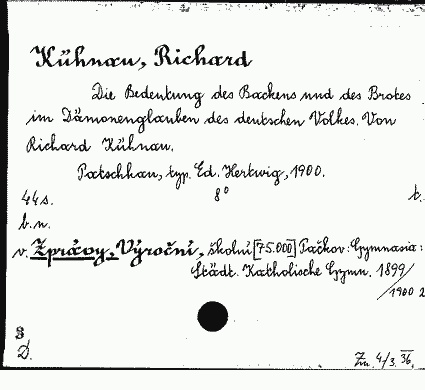 Kühnau, Richard
Die Bedeutung des Backens und des Brotes
im Dämonenglauben des deutschen Volkes. Von
Richard Kühnau.
Patschkau, typ. Ed. Hertwig, 1900.
44 s. 8° t.
b. n.
v. Zprávy, Výroční, školní [75.000] Pačkov: Gymnasia:
Städt. Katholische Gymn. 1899/
/1900
D. Zn. 4/3. 36.